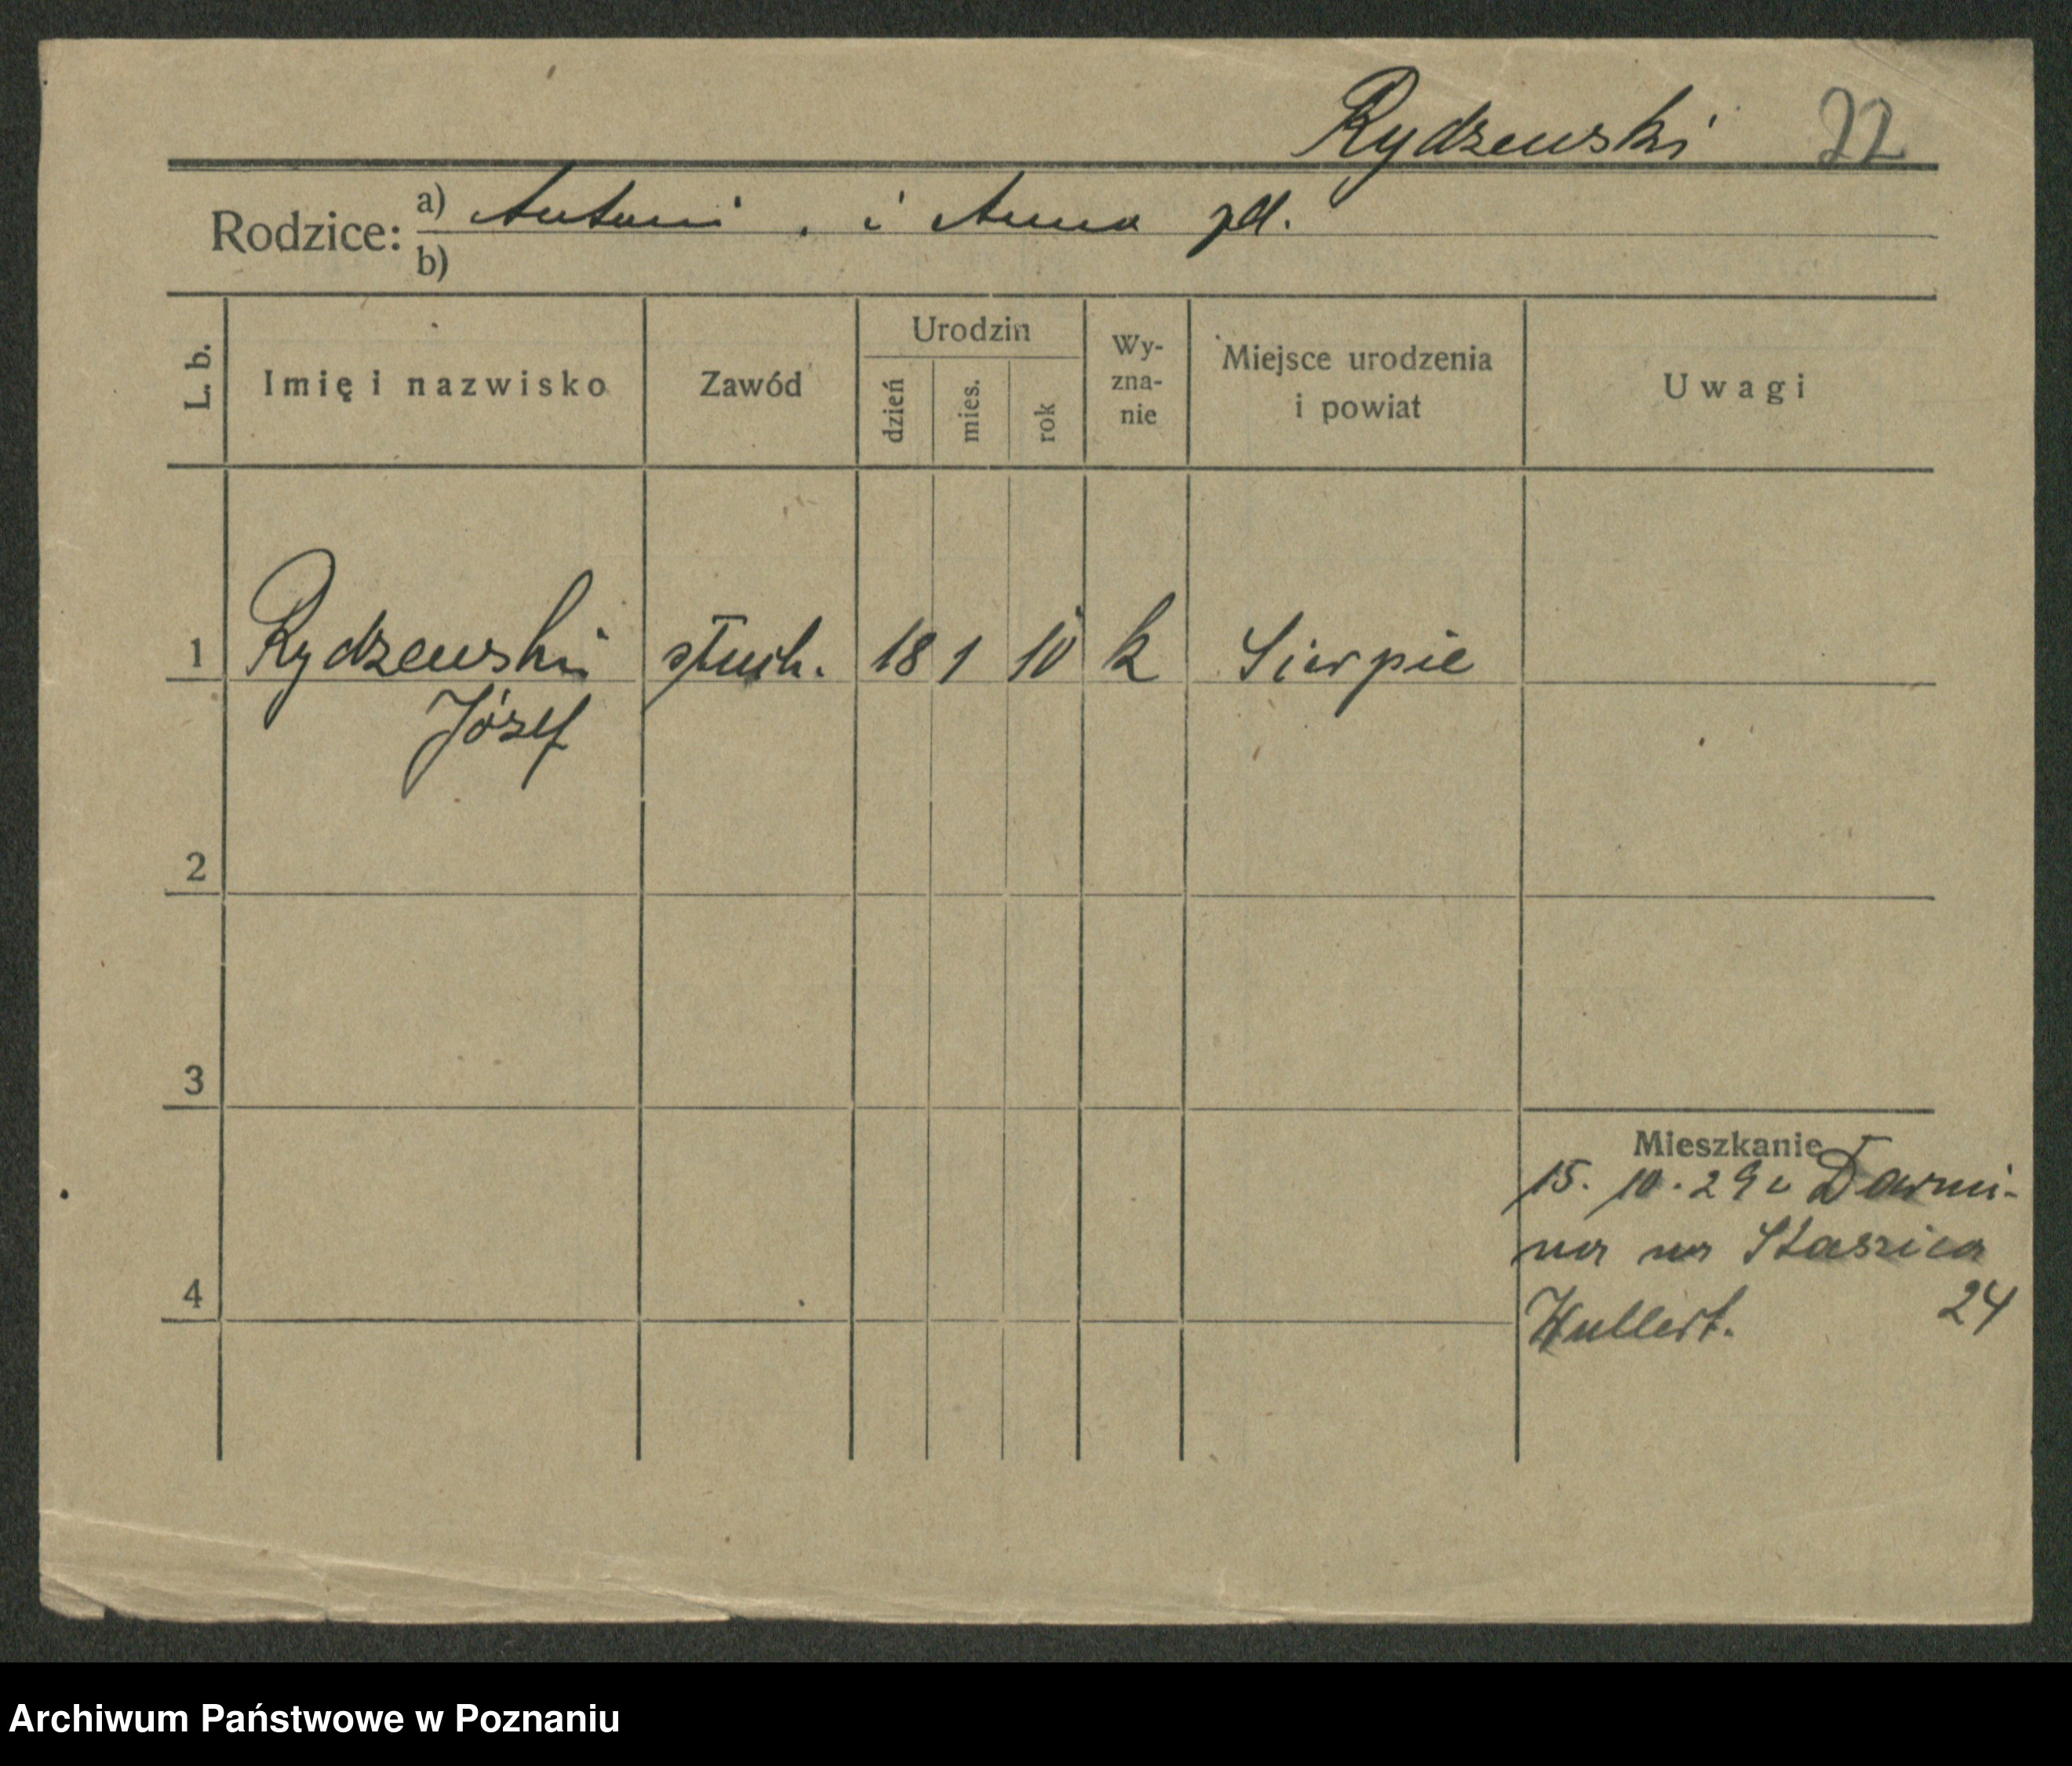 Rydzewski 22
Rodzice: a) Antoni . i Anna
b)
L. b.
Imię i nazwisko
Zawód
Urodzin
dzień
mies.
rok
Wy-
zna-
nie
Miejsce urodzenia
i powiat
Uwagi
1 Rydzewski słuch. 18 1 10 k Sierpie
Józef
2
3
4
Mieszkanie
15. 10. 29
na Staszica
24
Archiwum Państwowe w Poznaniu